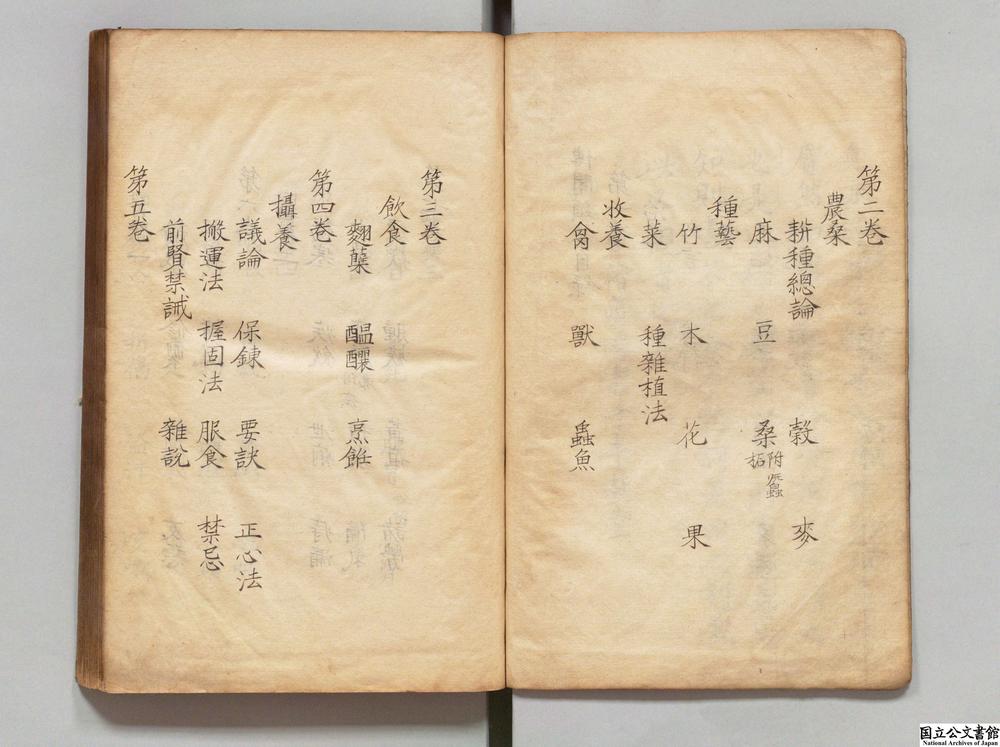 第二卷
農桑
耕種總論 穀 麥
麻 豆 桑
種藝
竹 木 花 果
菜 種雜植法
收養
禽 獸 蟲魚
第三卷
飲食
麴糵 醞釀 烹飪
第四卷
攝養
議論 保錬 要訣 正心法
搬運法 握固法 服食 禁忌
前賢禁誡 雜說
第五卷
国立公文書館
National Archives of Japan